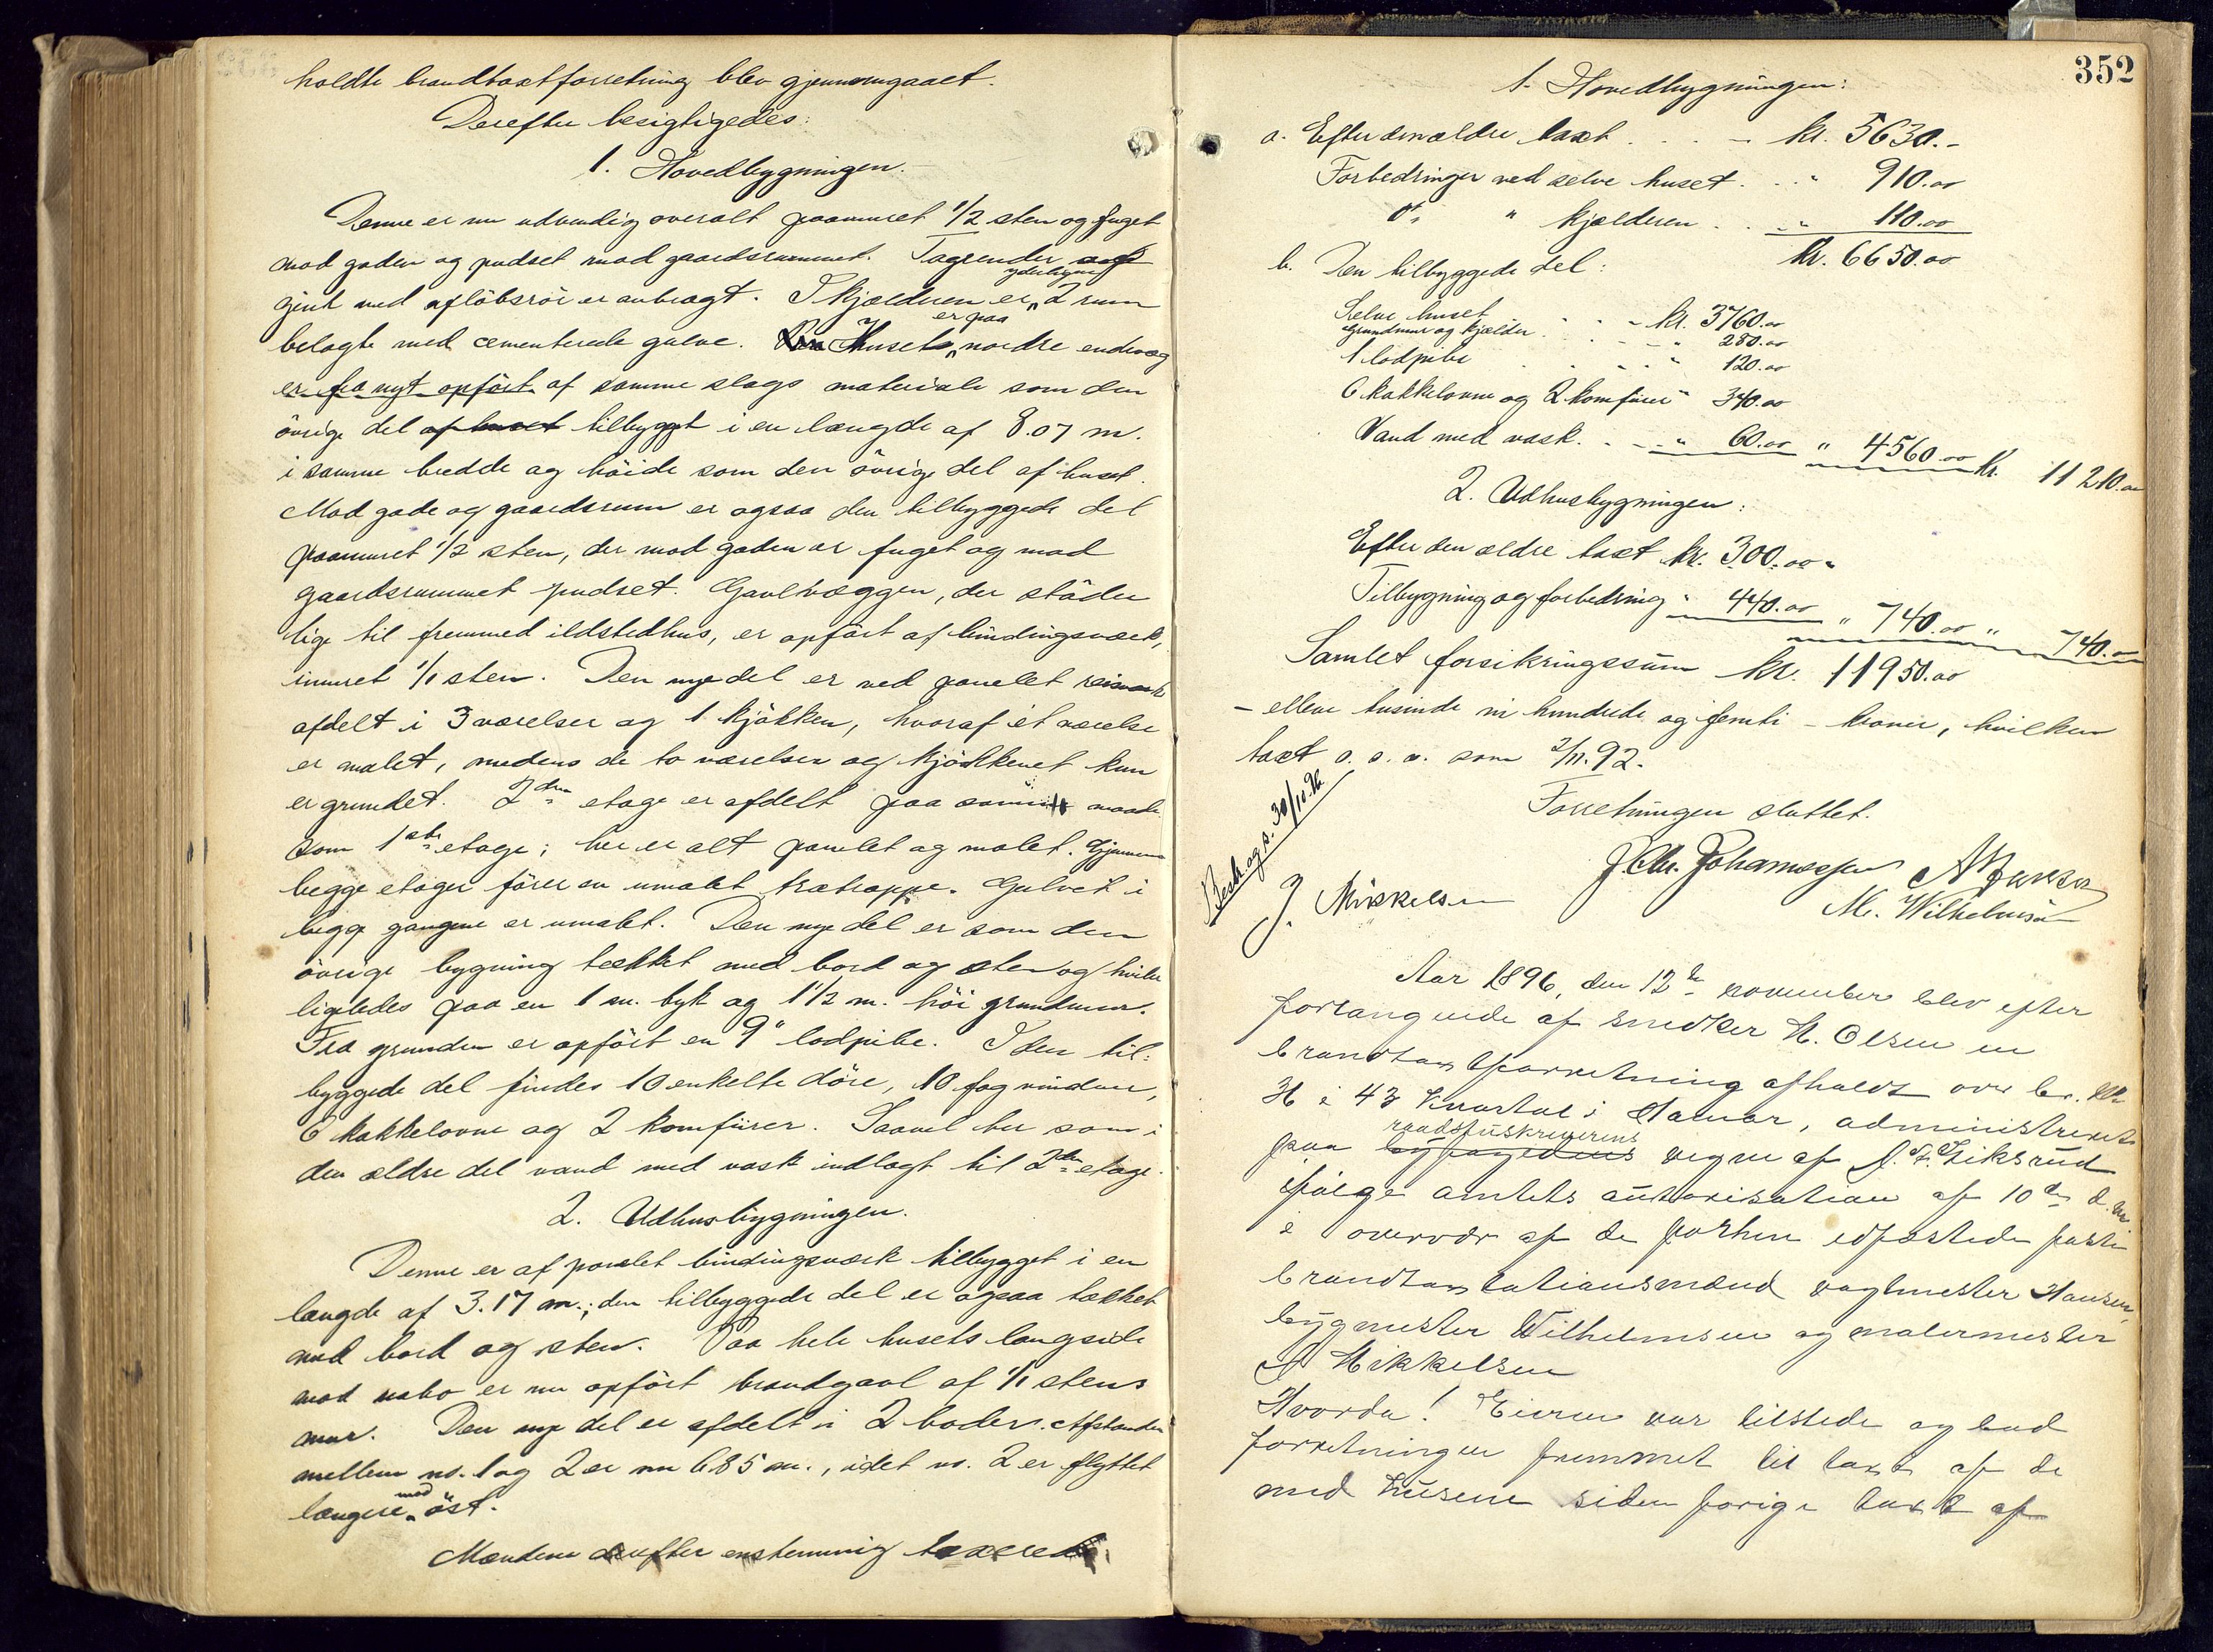 holdte brandtaxtforretning blev gjennemgaaet.
Derefter besigtigedes:
1. Hovedbygningen.
Denne er nu udvendig overalt paamuret 1/2 sten og fuget
mod gaden og pudset mod gaardsrummet. Tagrender
gjent med aflöbsrör er anbragt. I kjælderen er yderligere 2 rum
belagte med cementerede gulve. Husets er paa nordre endevæg
er fra nyt opfört af samme slags materiale som den
övrige del af huset tilbygget i en længde af 8.07 m.
i samme bredde og höide som den övrige del af huset.
Mod gade og gaardsrum er ogsaa den tilbyggede del
paamuret 1/2 sten, der mod gaden er fuget og mod
gaardsrummet pudset. Gavlvæggen, der stöder
lige til fremmed ildstedhus, er opfört af bindingsværk,
inmuret 1/1 sten. Den nye del er ved panelet reisværk
afdelt i 3 værelser og 1 kjökken, hvoraf et værelse
er malet, medens de to værelser og kjökkenet kun
er grundet. 2den etage er afdelt paa samme maade
som 1ste etage; her er alt panelet og malet. Gjennem
begge etager förer en umalet trætrappe. Gulvet i
begge gangene er umalet. Den nye del er som den
övrige bygning tækket med bord og sten og hviler
ligeledes paa en 1 m. tyk og 1 1/2 m. höi grundmur.
Fra grunden er opfört en 9" lodpibe. I den til-
byggede del findes 10 enkelte döre, 10 fag vinduer,
6 kakkelovne og 2 komfürer. Saavel her som i
den ældre del vand med vask indlagt til 2den etage.
2. Udhusbygningen.
Denne er af panelet bindingsværk tilbygget i en
længde af 3.17 m.; den tilbyggede del er ogsaa tækket
med bord og sten. Paa hele husets langside
mod nabo er nu opfört brandgavl af 1/1 stens
mur. Den nye del er afdelt i 2 boder. Afstanden
mellem no. 1 og 2 er nu 6.85 m., idet no. 2 er flyttet
længere mod öst.
Mændene derefter enstemmig taxerede
352
1. Hovedbygningen:
a. Efter den ældre taxt . . . - kr. 5630.-
Forbedringer ved selve huset . . " 910.00
do " kjælderen . . " 110.00
kr. 6650.00
b. Den tilbyggede del:
Selve huset . . . - kr. 3760.00
Grundmur og kjælder . . . " 280.00
1 lodpibe . . . . " 120.00
6 kakkelovne og 2 komfürer " 340.00
Vand med vask . . - " 60.00 " 4560.00 kr. 11210.00
2. Udhusbygningen:
Efter den ældre taxt kr. 300.00
Tilbygning og forbedring " 440.00 " 740.00 " 740.00
Samlet forsikringssum kr. 11950.00
- elleve tusinde ni hundrede og femti - kroner, hvilken
taxt o. s. v. som 2/11.92.
Forretningen sluttet.
Beskr. ags. 30/10.96.
J. Chr. Johannessen
J. Mikkelsen M. Wilhelmsen
Aar 1896, den 12te november blev efter
forlangende af snedker H. Olsen en
brandtaxtforretning afholdt over br. No
36 i 43 kvartal i Hamar, administreret
paa byfogedens raadstuskriverens vegne af
ifölge amtets autorisation af 10de d. m.
i overvær af de forhen edfæstede faste
brandtaxtationsmænd vagtmester Hansen,
bygmester Wilhelmsen og malermester
J. Mikkelsen
Hvorda! Eieren var tilstede og bad
forretningen fremmet til taxt af de
med husene siden forige taxt af